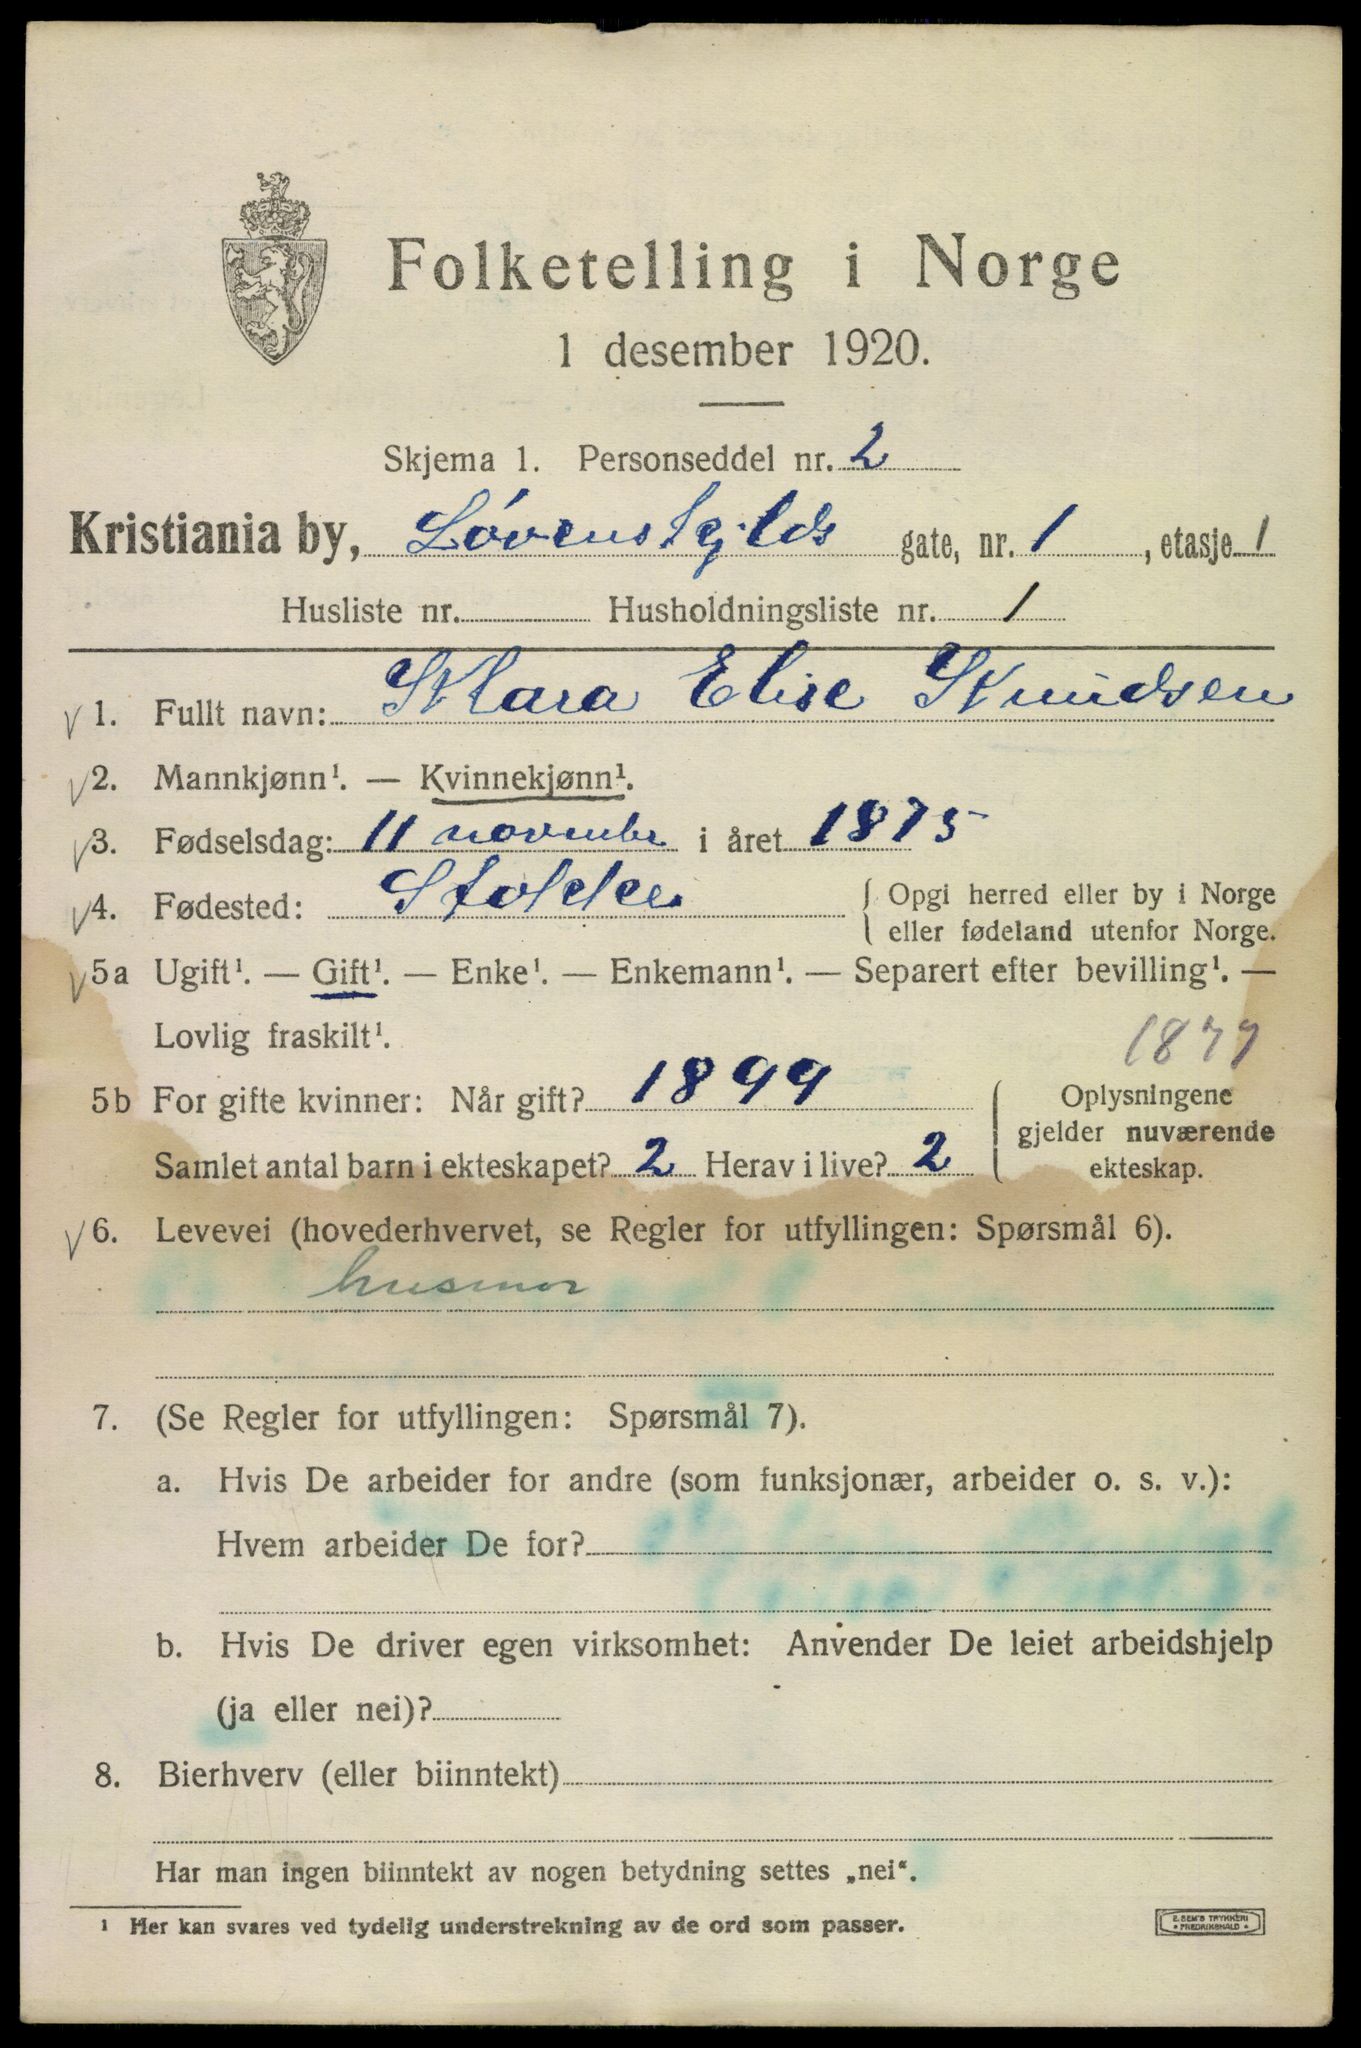 Folketelling i Norge
1 desember 1920.
Skjema 1. Personseddel nr. 2
Kristiania by, Løvenskjolds gate, nr. 1, etasje 1
Husliste nr. Husholdningsliste nr. 1
√ 1. Fullt navn: Klara Elise Knudsen
√ 2. Mannkjønn¹. — Kvinnekjønn¹.
√ 3. Fødselsdag: 11 november i året 1875
√ 4. Fødested: Stokke { Opgi herred eller by i Norge
eller fødeland utenfor Norge.
√ 5a Ugift¹. — Gift¹. — Enke¹. — Enkemann¹. — Separert efter bevilling¹. —
Lovlig fraskilt¹.
5b For gifte kvinner: Når gift? 1899
Samlet antal barn i ekteskapet? 2 Herav i live? 2
{ Oplysningene
gjelder nuværende
ekteskap.
√ 6. Levevei (hovederhvervet, se Regler for utfyllingen: Spørsmål 6).
husmor
7. (Se Regler for utfyllingen: Spørsmål 7).
a. Hvis De arbeider for andre (som funksjonær, arbeider o. s. v.):
Hvem arbeider De for?
b. Hvis De driver egen virksomhet: Anvender De leiet arbeidshjelp
(ja eller nei)?
8. Bierhverv (eller biinntekt)
Har man ingen biinntekt av nogen betydning settes „nei“.
¹ Her kan svares ved tydelig understrekning av de ord som passer.
E. SEM'S TRYKKERI
* FREDRIKSHALD *